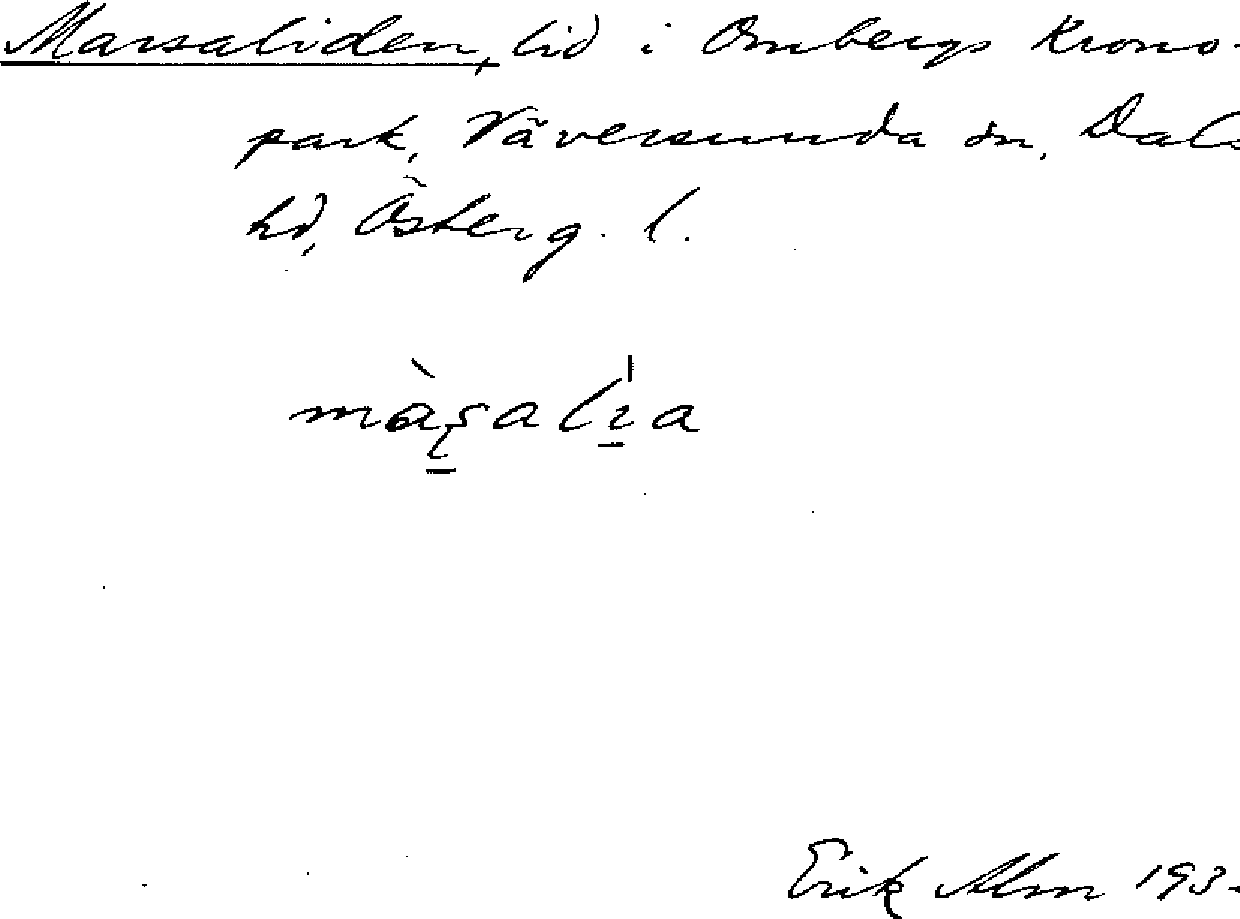 Marsaliden, lid i Ombergs Krono-
park, Väversunda sn, Dals
hd, Österg. l.
màʂalı̍a
Erik Alm 193-